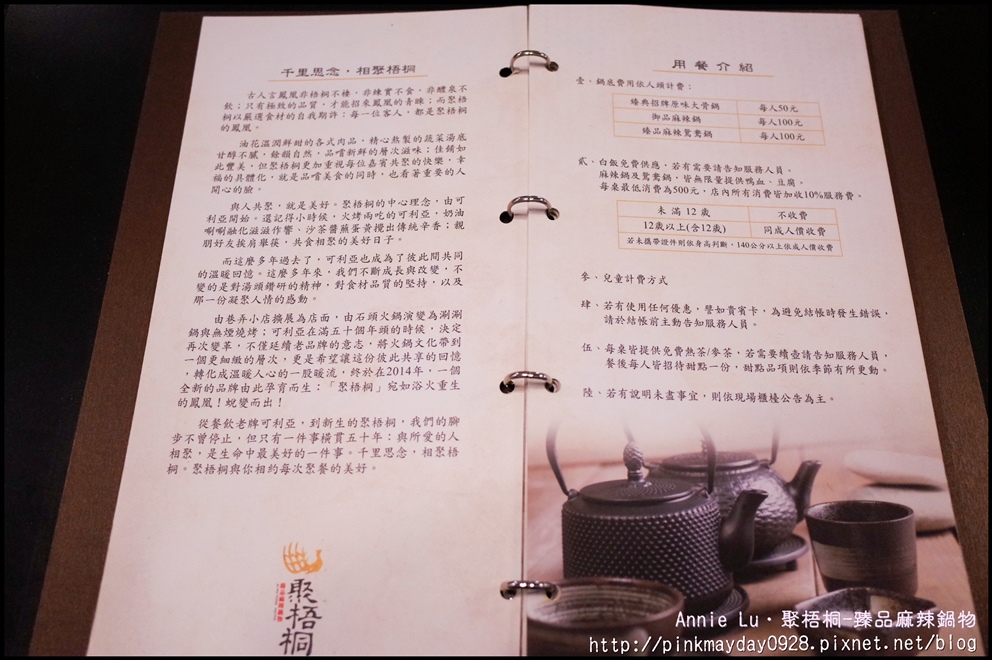 千里思念，相聚梧桐
古人言鳳凰非梧桐不棲，非練實不食，非醴泉不
飲；只有極致的品質，才能招來鳳凰的青睞；而聚梧
桐以嚴選食材的自我期許：每一位客人，都是聚梧桐
的鳳凰。
油花溫潤鮮甜的各式肉品，精心熬製的蔬菜湯底
甘醇不膩，餘韻自然，品嚐新鮮的層次滋味；佳餚如
此豐美，但聚梧桐更加重視每位嘉賓共聚的快樂，幸
福的具體化，就是品嚐美食的同時，也看著重要的人
開心的臉。
與人共聚，就是美好。聚梧桐的中心理念，由可
利亞開始。還記得小時候，火烤兩吃的可利亞，奶油
唰唰融化滋滋作響、沙茶醬蘸蛋黃攪出傳統辛香；親
朋好友挨肩舉筷，共食相聚的美好日子。
而這麼多年過去了，可利亞也成為了彼此間共同
的溫暖回憶。這麼多年來，我們不斷成長與改變，不
變的是對湯頭鑽研的精神，對食材品質的堅持，以及
那一份凝聚人情的感動。
由巷弄小店擴展為店面，由石頭火鍋演變為涮涮
鍋與無煙燒烤；可利亞在滿五十個年頭的時候，決定
再次變革，不僅延續老品牌的意志，將火鍋文化帶到
一個更細緻的層次，更是希望讓這份彼此共享的回憶
，轉化成溫暖人心的一股暖流，終於在2014年，一個
全新的品牌由此孕育而生；「聚梧桐」宛如浴火重生
的鳳凰！蛻變而出！
從餐飲老牌可利亞，到新生的聚梧桐，我們的腳
步不曾停止，但只有一件事橫貫五十年：與所愛的人
相聚，是生命中最美好的一件事。千里思念，相聚梧
桐。聚梧桐與你相約每次聚餐的美好。
聚梧桐
臻品麻辣鍋物
用餐介紹
壹、鍋底費用依人頭計費：
臻典招牌原味大骨鍋 每人50元
御品麻辣鍋 每人100元
臻品麻辣鴛鴦鍋 每人100元
貳、白飯免費供應，若有需要請告知服務人員。
麻辣鍋及鴛鴦鍋，皆無限量提供鴨血、豆腐。
每桌最低消費為500元，店內所有消費皆加收10%服務費。
未滿 12 歲 不收費
12歲以上(含12歲) 同成人價收費
若未攜帶證件則依身高判斷，140公分以上依成人價收費
參、兒童計費方式
肆、若有使用任何優惠，譬如貴賓卡，為避免結帳時發生錯誤，
請於結帳前主動告知服務人員。
伍、每桌皆提供免費熱茶/麥茶，若需要續壺請告知服務人員，
餐後每人皆招待甜點一份，甜點品項則依季節有所更動。
陸、若有說明未盡事宜，則依現場櫃檯公告為主。
Annie Lu．聚梧桐-臻品麻辣鍋物
http://pinkmayday0928.pixnet.net/blog